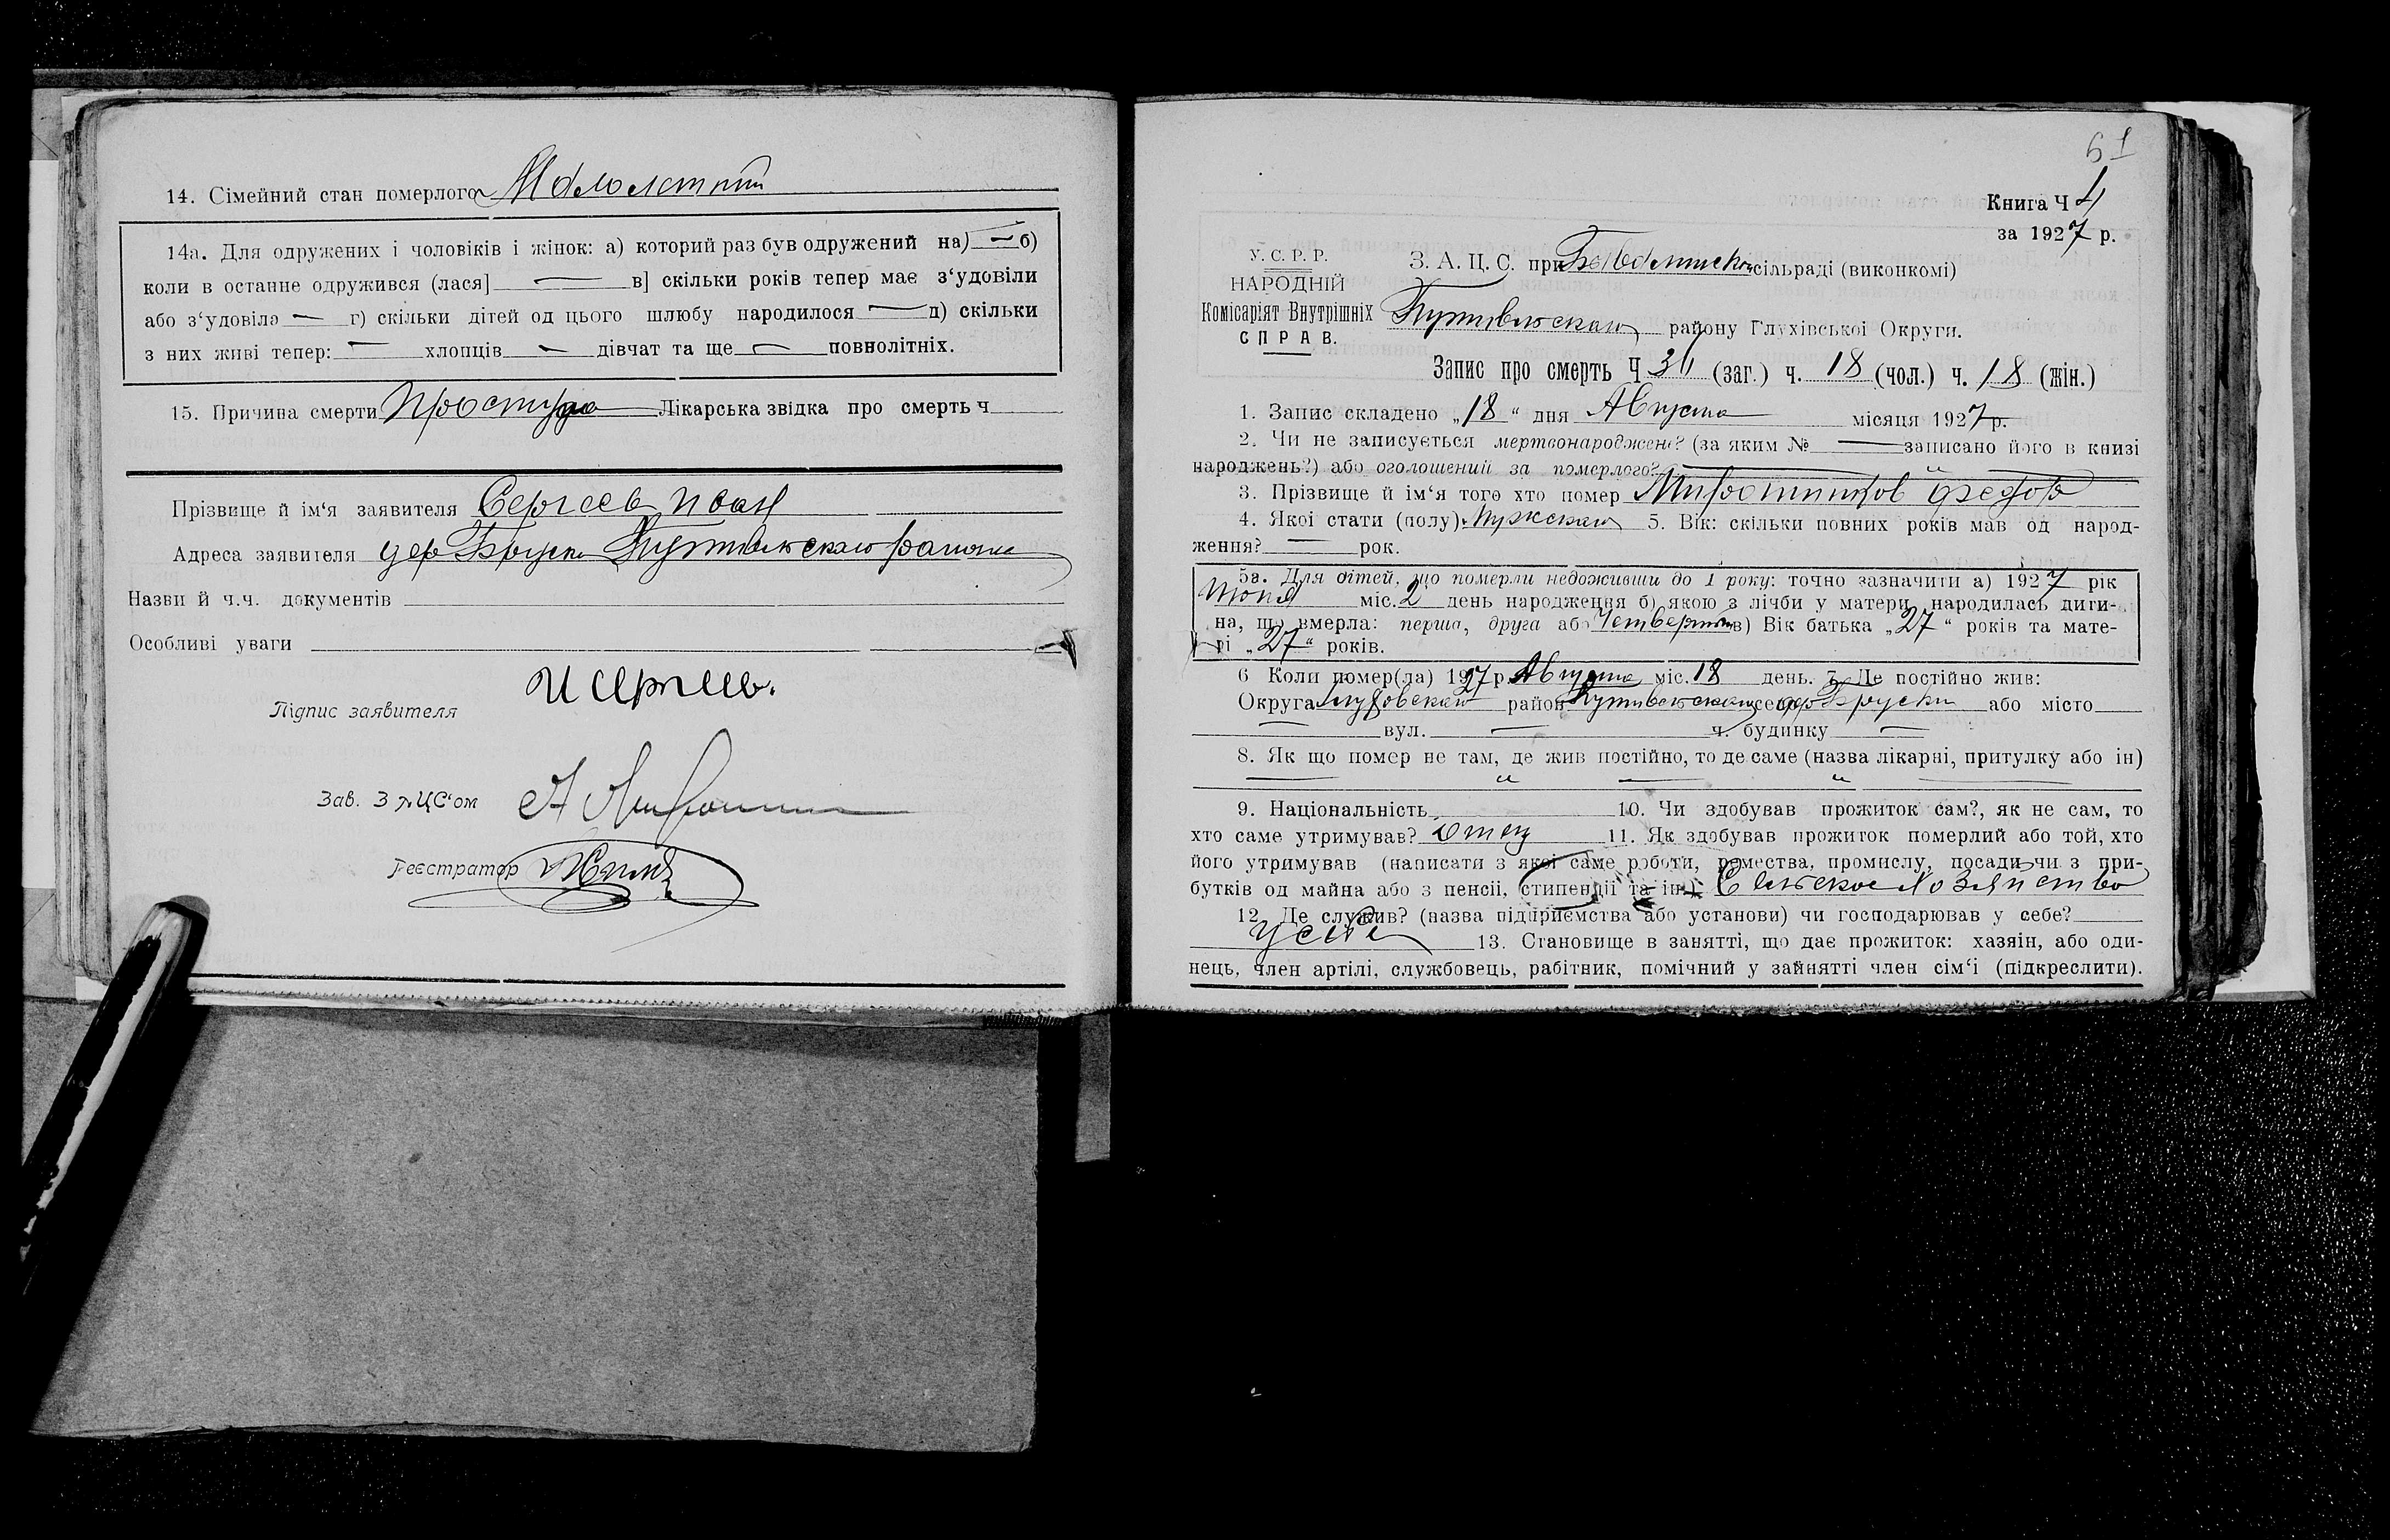 14. Сімейний стан померлого Малолетний
14а. Для одружених і чоловіків і жінок: а) которий раз був одружений на) — б)
коли в останне одружився (лася] — в] скільки років тепер має з‘удовіли
або з‘удовіла — г) скільки дітей од цього шлюбу народилося — д) скільки
з них живі тепер: — хлопців — дівчат та ще — повнолітніх.
15. Причина смерти Простуда Лікарська звідка про смерть ч
Прізвище й ім‘я заявителя Сергеев Иван
Адреса заявителя дер Бруски Путивльскаго района
Назви й ч.ч. документів
Особливі уваги
Підпис заявителя И Сергеев.
Зав. ЗАЦС‘ом А
Реєстратор
61
Книга Ч 4
за 1927 р.
У. С. Р. Р.
НАРОДНІЙ
Комісаріят Внутрішніх
СПРАВ.
З. А. Ц. С. при сільраді (виконкомі)
Путивльскаго району Глухівської Округи.
Запис про смерть Ч (заг.) ч. 18 (чол.) ч. 18 (жін.)
1. Запис складено „18“ дня Августа місяця 1927 р.
2. Чи не записується мертвонароджене? (за яким № — записано його в книзі
народжень?) або оголошений за померлого?
3. Прізвище й ім‘я того хто помер Мирошников Федор
4. Якої стати (полу) Мужскаго 5. Вік: скільки повних років мав од народ-
ження? — рок.
5а. Для дітей, що померли недоживши до 1 року: точно зазначити а) 1927 рік
Июня міс. 2 день народження б) якою з лічби у матери народилась дити-
на, що вмерла: перша, друга або Четвертый в) Вік батька „27“ років та мате-
рі „27“ років.
6 Коли помер(ла) 1927 р. Августа міс. 18 день. 7. Де постійно жив:
Округа Глуховской район Путивльскаго село дер Бруски або місто
— вул. — ч. будинку —
8. Як що помер не там, де жив постійно, то де саме (назва лікарні, притулку або ін)
— „ — „ —
9. Національність 10. Чи здобував прожиток сам?, як не сам, то
хто саме утримував? Отец 11. Як здобував прожиток померлий або той, хто
його утримував (написати з якої саме роботи, ремества, промислу, посади чи з при-
бутків од майна або з пенсії, стипендії та ін.) Сельское Хозяйство
12. Де служив? (назва підприємства або установи) чи господарював у себе?
У себя 13. Становище в занятті, що дає прожиток: хазяїн, або оди-
нець, член артілі, службовець, рабітник, помічний у зайнятті член сім‘і (підкреслити).